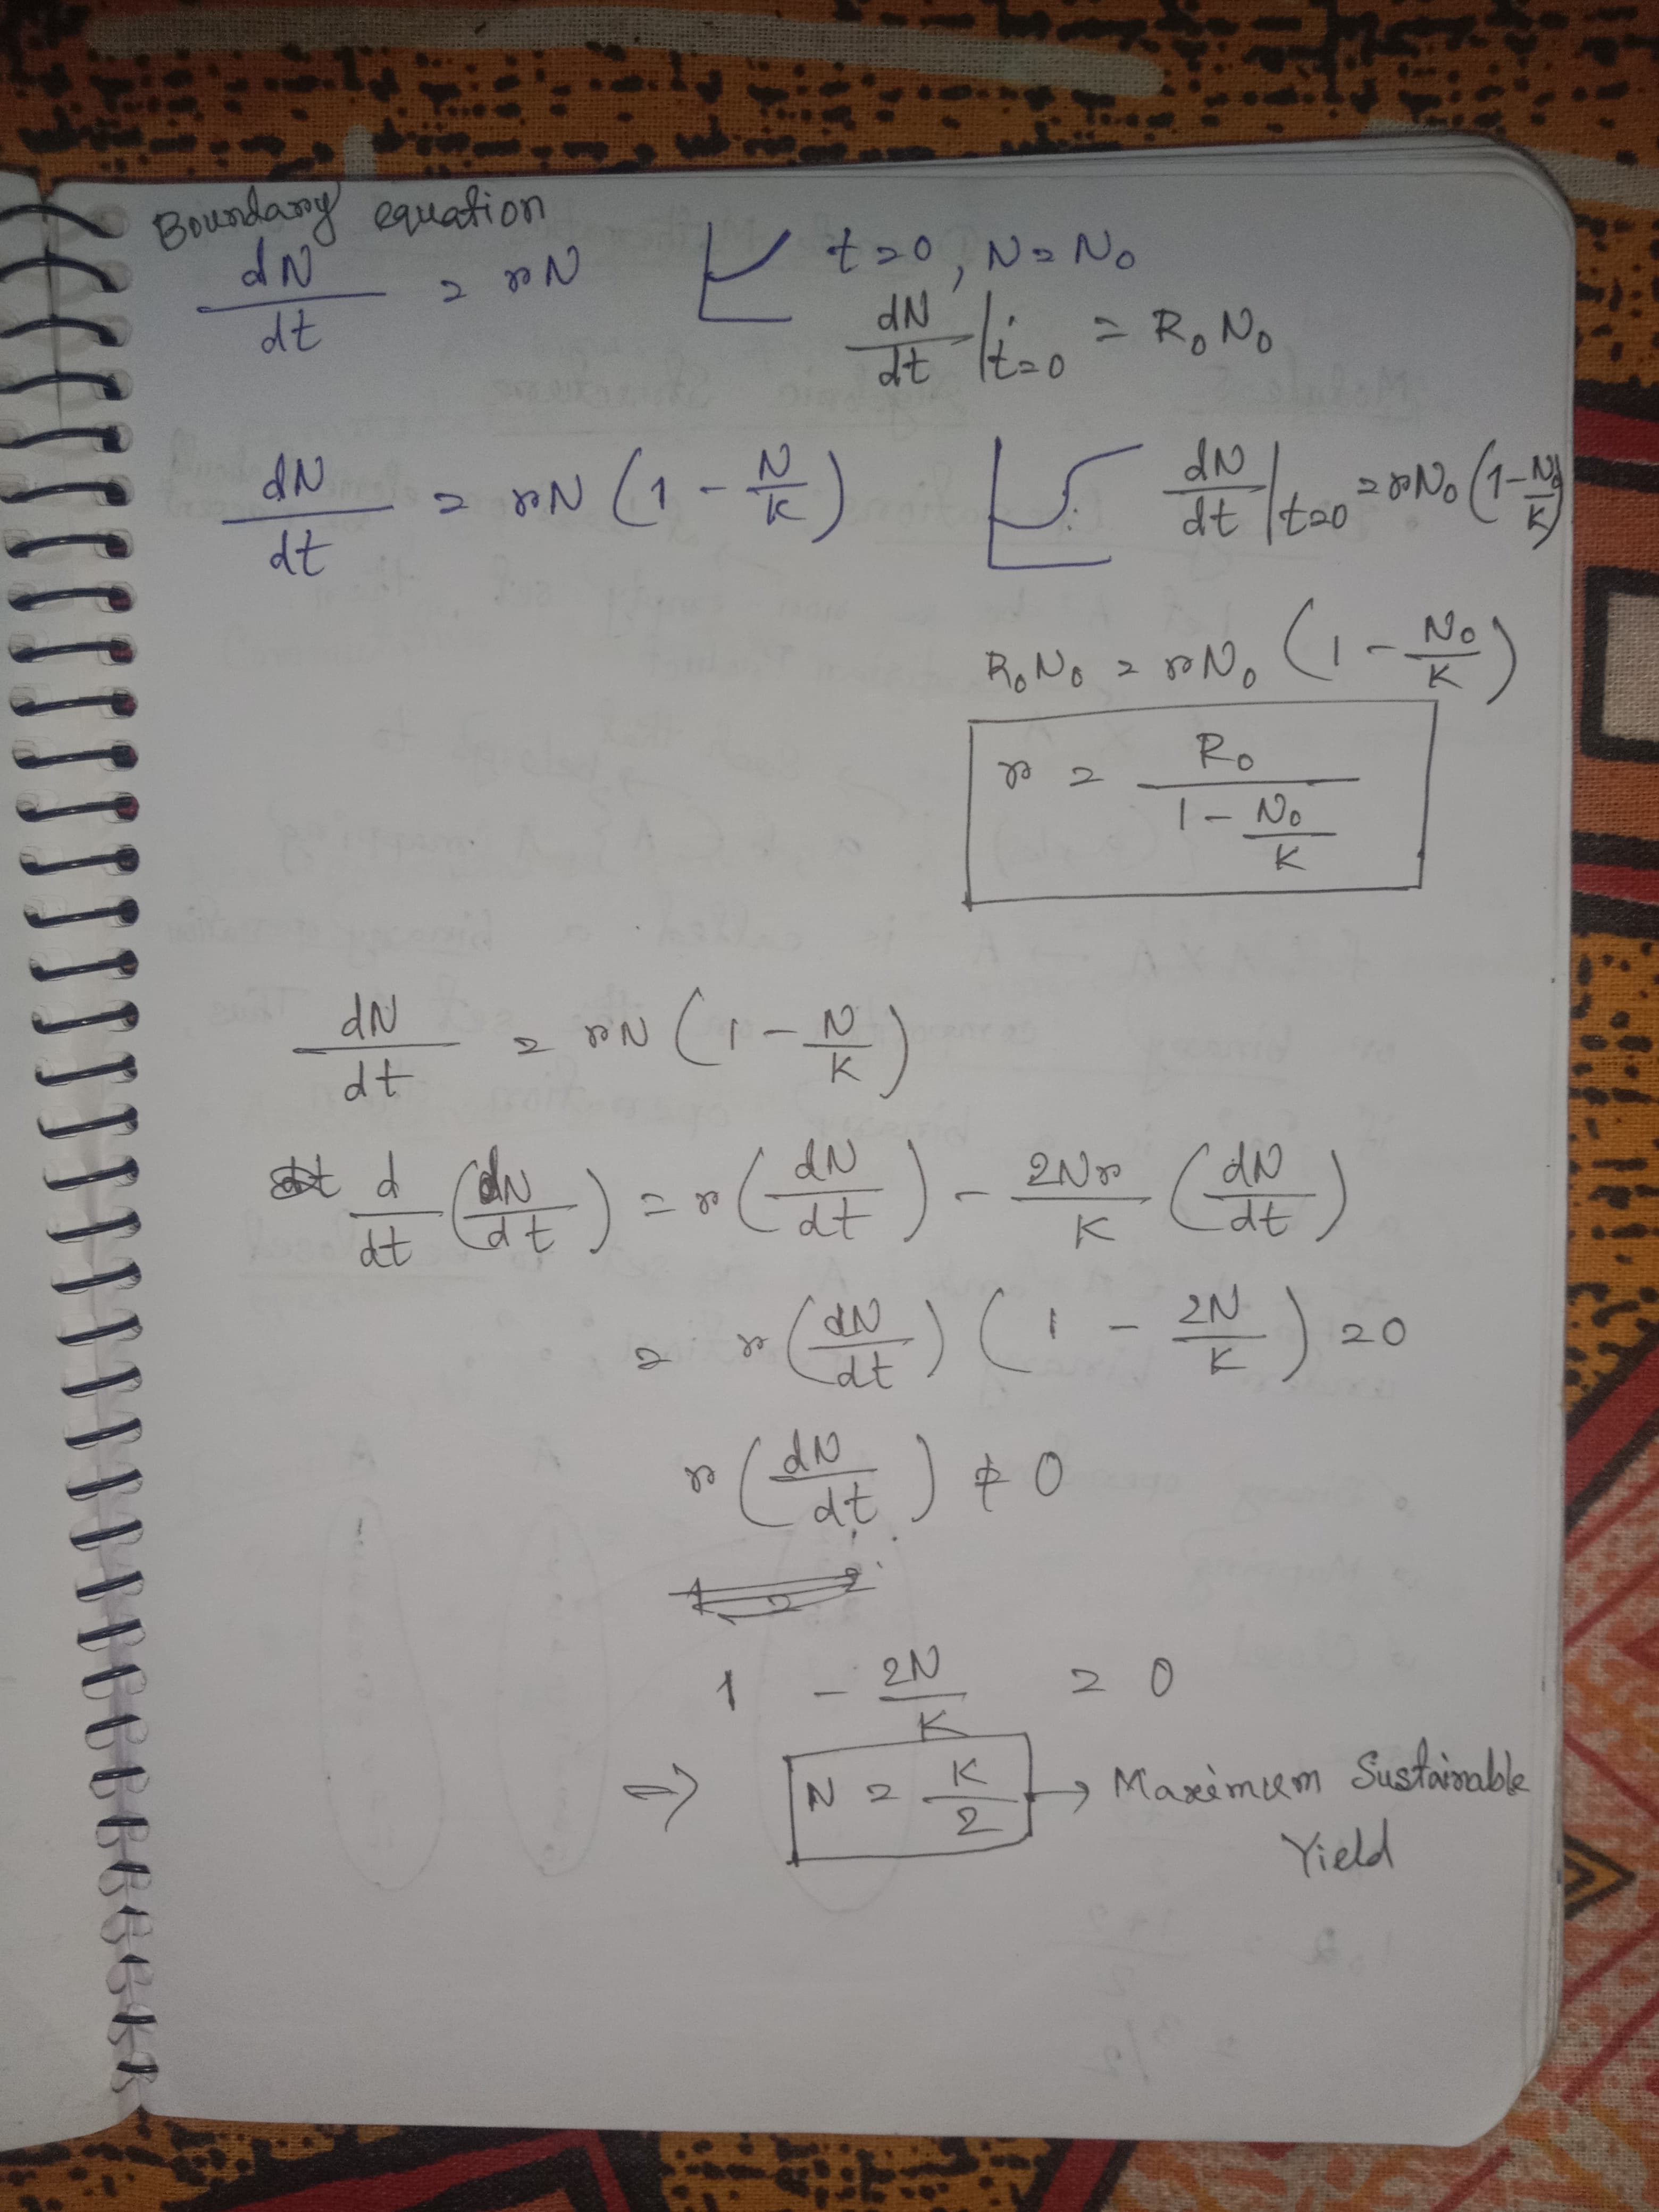 Boundary equation
dN/dt = rN    t=0, N=N₀
dN/dt |t=0 = R₀N₀
dN/dt = rN (1 - N/K)    dN/dt |t=0 = rN₀ (1 - N₀/K)
R₀N₀ = rN₀ (1 - N₀/K)
r = R₀ / (1 - N₀/K)
dN/dt = rN (1 - N/K)
d/dt (dN/dt) = r (dN/dt) - 2Nr/K (dN/dt)
= r (dN/dt) (1 - 2N/K) = 0
r (dN/dt) ≠ 0
1 - 2N/K = 0
⇒ N = K/2 → Maximum Sustainable
Yield